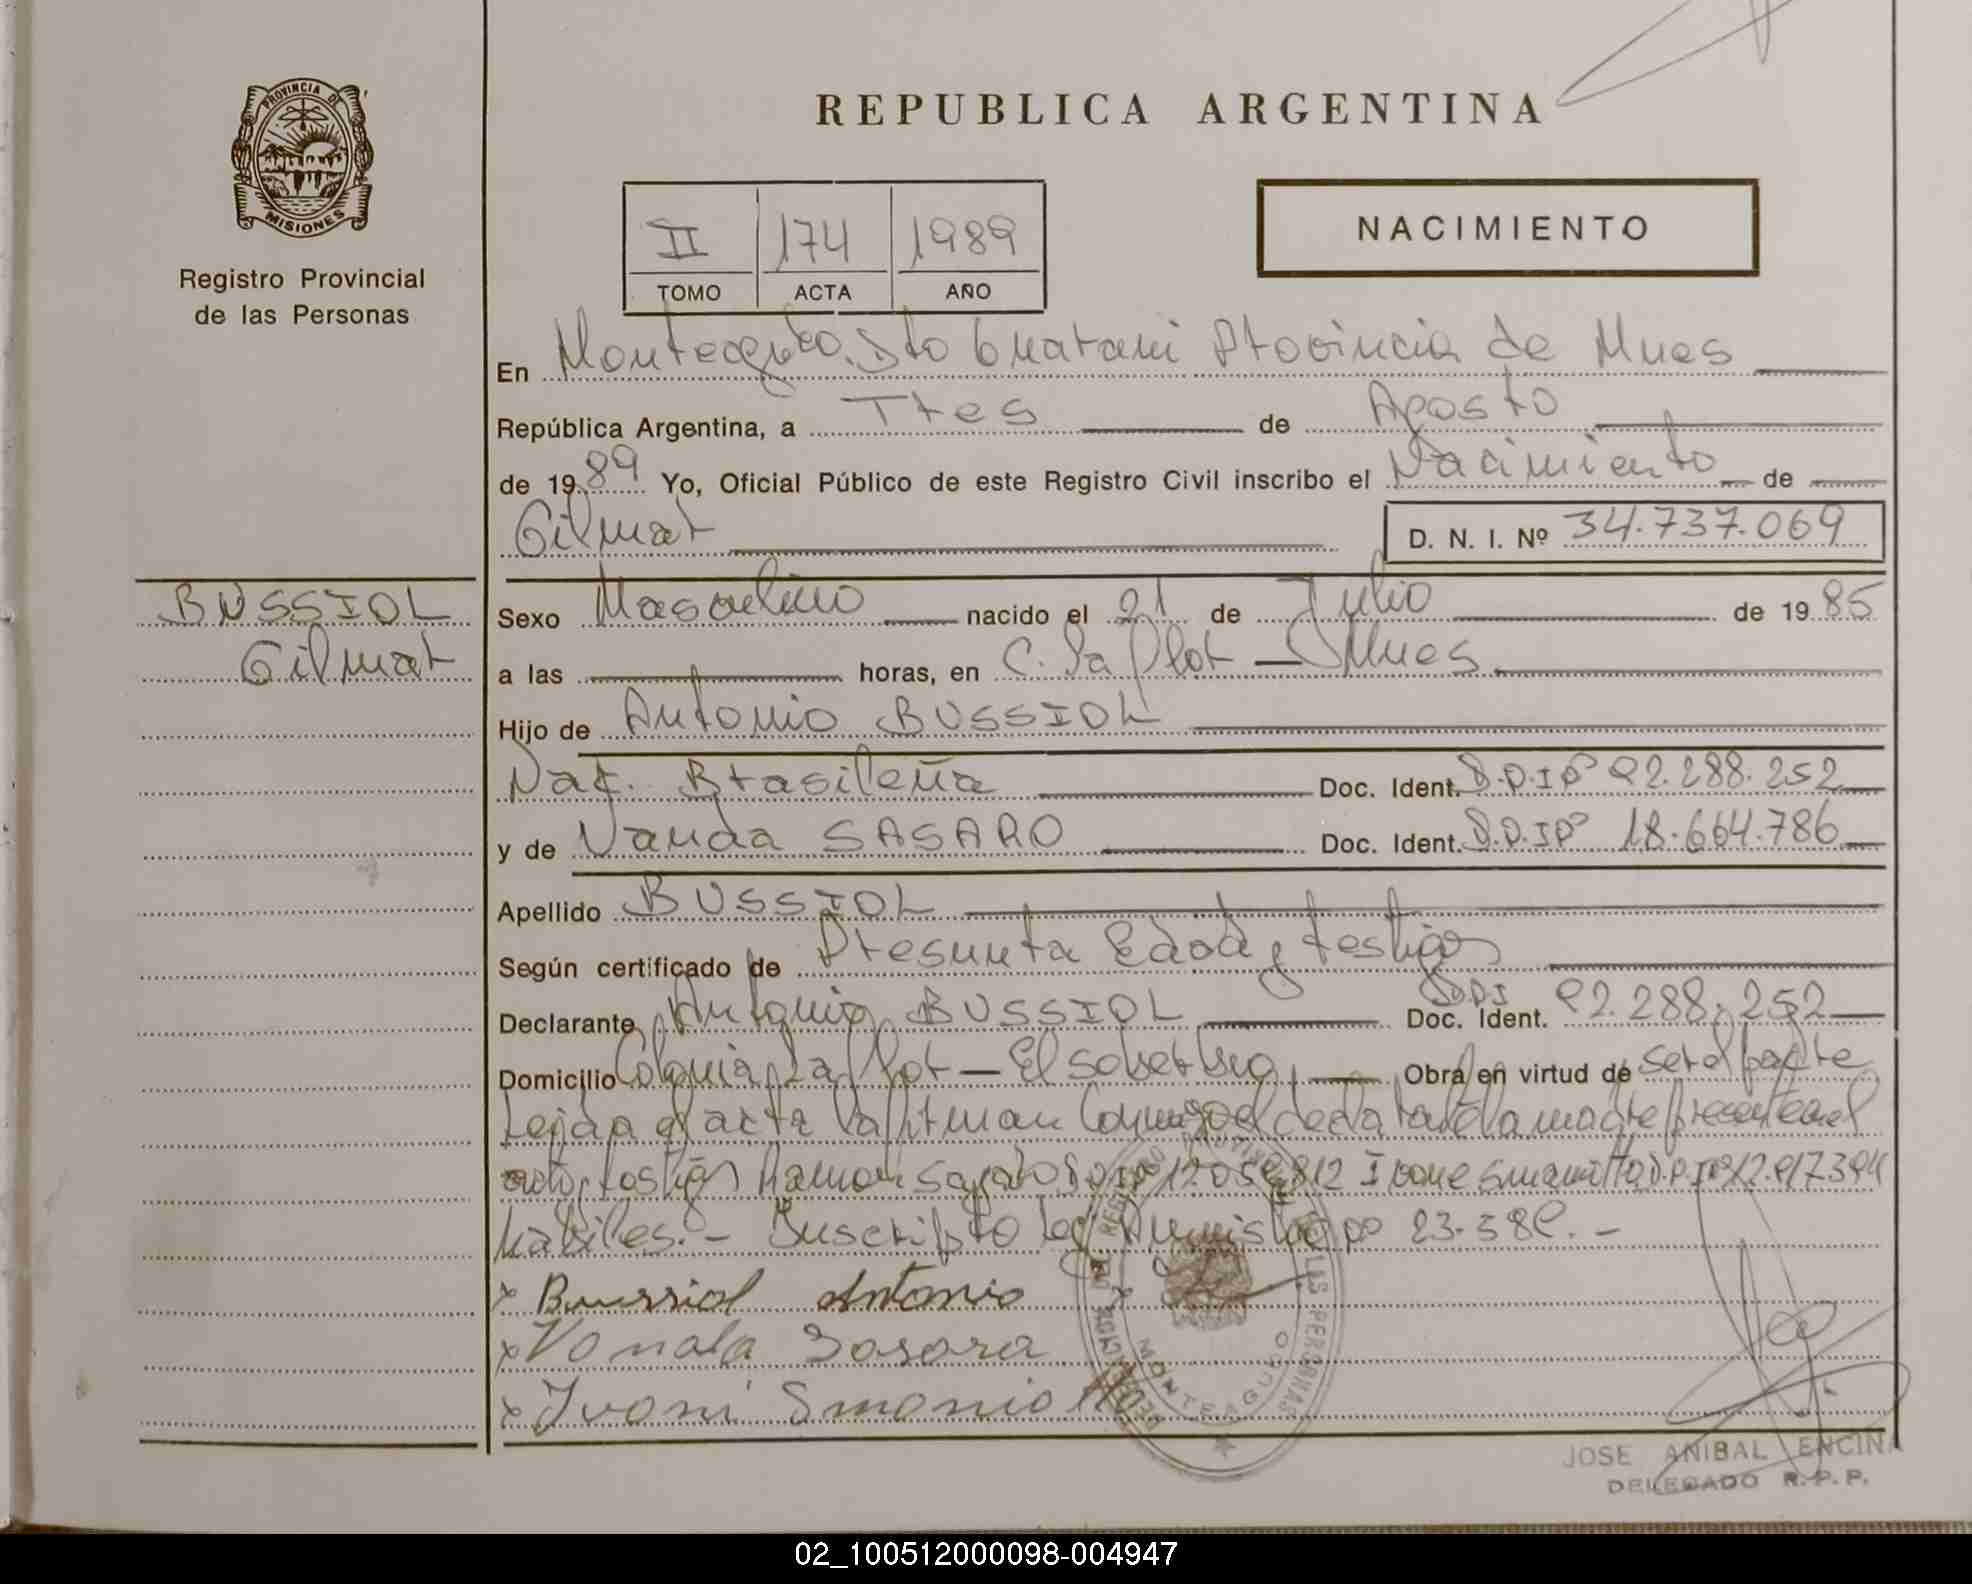 PROVINCIA DE
MISIONES
Registro Provincial
de las Personas
REPUBLICA ARGENTINA
II 174 1989
TOMO ACTA AÑO
NACIMIENTO
En Monteagudo. Dto Guarani Provincia de Mnes
República Argentina, a Tres de Agosto
de 1989 Yo, Oficial Público de este Registro Civil inscribo el Nacimiento de
Gilmar
D. N. I. Nº 34.737.069
BUSSIOL
Gilmar
Sexo Masculino nacido el 21 de Julio de 1985
a las horas, en C. La Flor - Mnes.
Hijo de Antonio BUSSIOL
Nac. Brasileña Doc. Ident. 92.288.252
y de Vanda SASARO Doc. Ident. 18.664.786
Apellido BUSSIOL
Según certificado de Presunta Edad y testigos
Declarante Antonio BUSSIOL Doc. Ident. 92.288.252
Domicilio Colonia La Flor - El Soberbio Obra en virtud de ser el padre
Leida el acta la firman conmigo el declarante la madre presente en el
acto, testigos Ramon Sasaro 12.059.812 Ivone
habiles. - Suscripto Ley 23.
x Bussiol Antonio x
x Vonda Sosora
x Ivoni
DELEGACION DEL REGISTRO PROVINCIAL DE LAS PERSONAS
MONTEAGUDO
JOSE ANIBAL ENCINA
DELEGADO R.P.P.
02_100512000098-004947